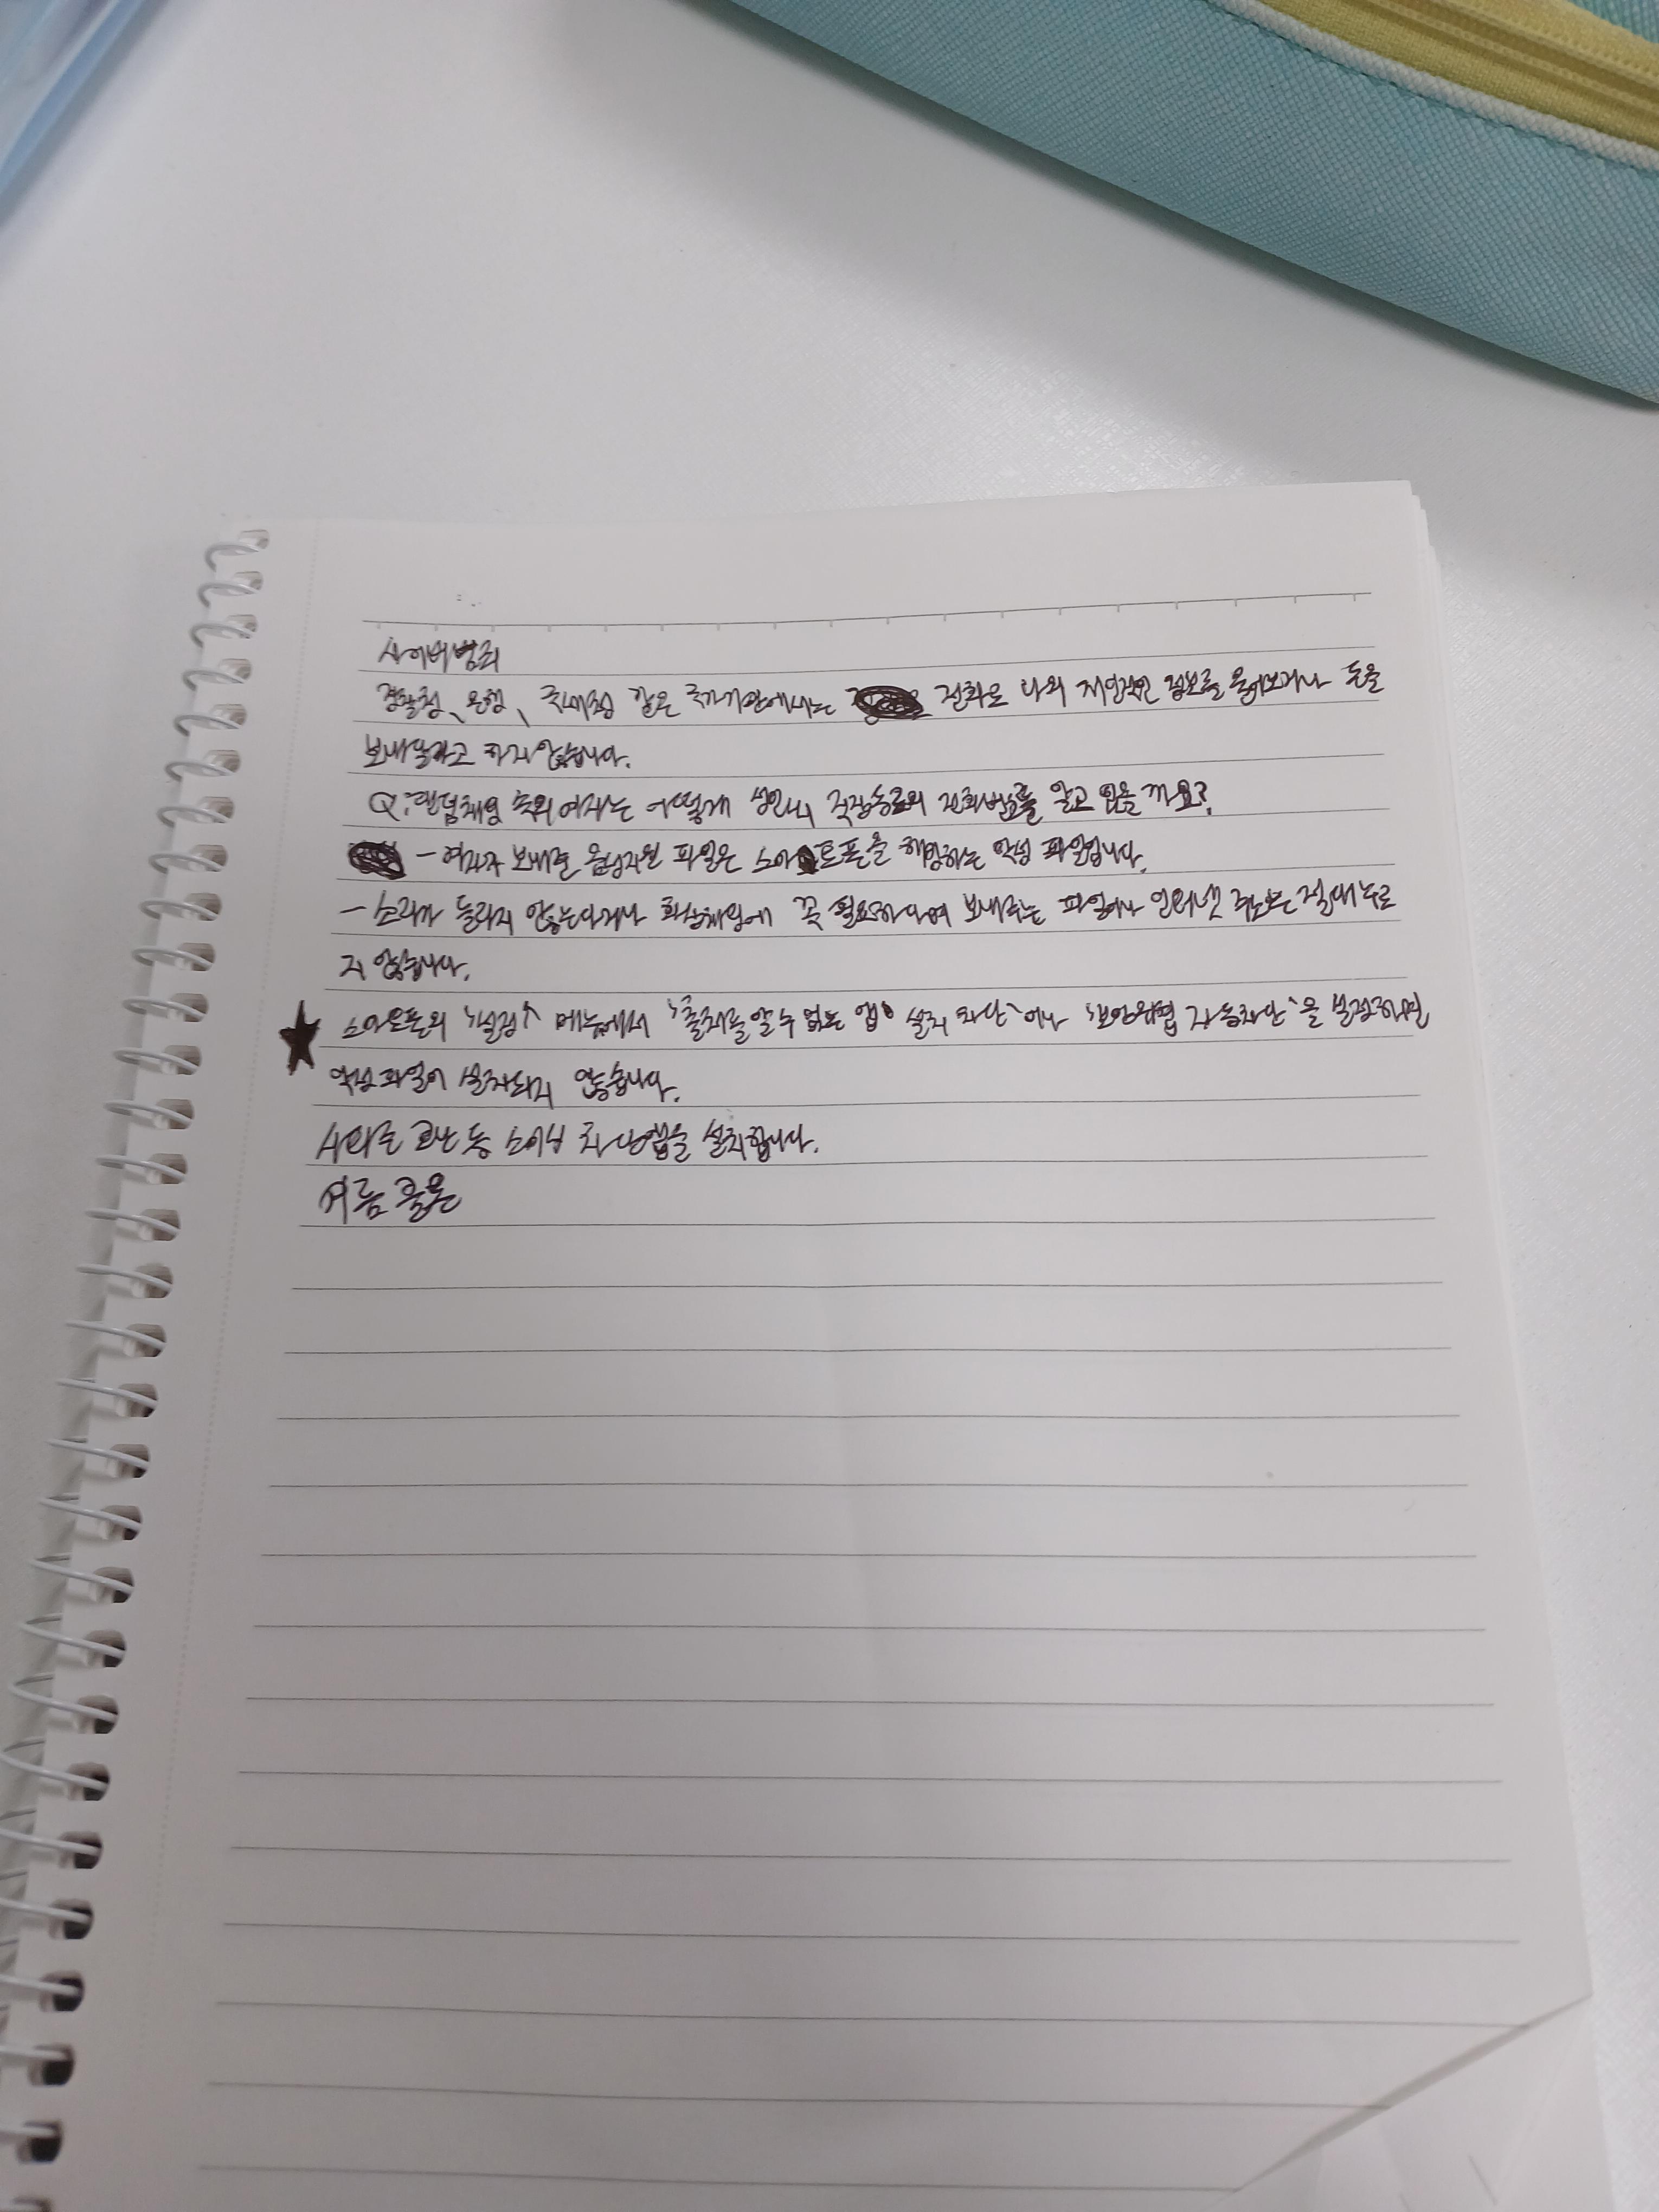 사이버범죄
경찰청, 은행, 국세청 같은 국가기관에서는 전화로 나의 개인적인 정보를 물어보거나 돈을
보내달라고 하지 않습니다.
Q: 랜덤채팅 속의 여자는 어떻게 성인의 직장동료의 전화번호를 알고 있을 까요?
- 여자가 보내준 음성지원 파일은 스마트폰을 해킹하는 악성 파일입니다.
- 소리가 들리지 않는다거나 화상채팅에 꼭 필요하다며 보내주는 파일이나 인터넷 주소는 절대 누르
지 않습니다.
★ 스마트폰의 '설정' 메뉴에서 '출처를 알 수 없는 앱 설치 차단'이나 '보안위협 자동차단'을 설정하면
악성파일이 설치되지 않습니다.